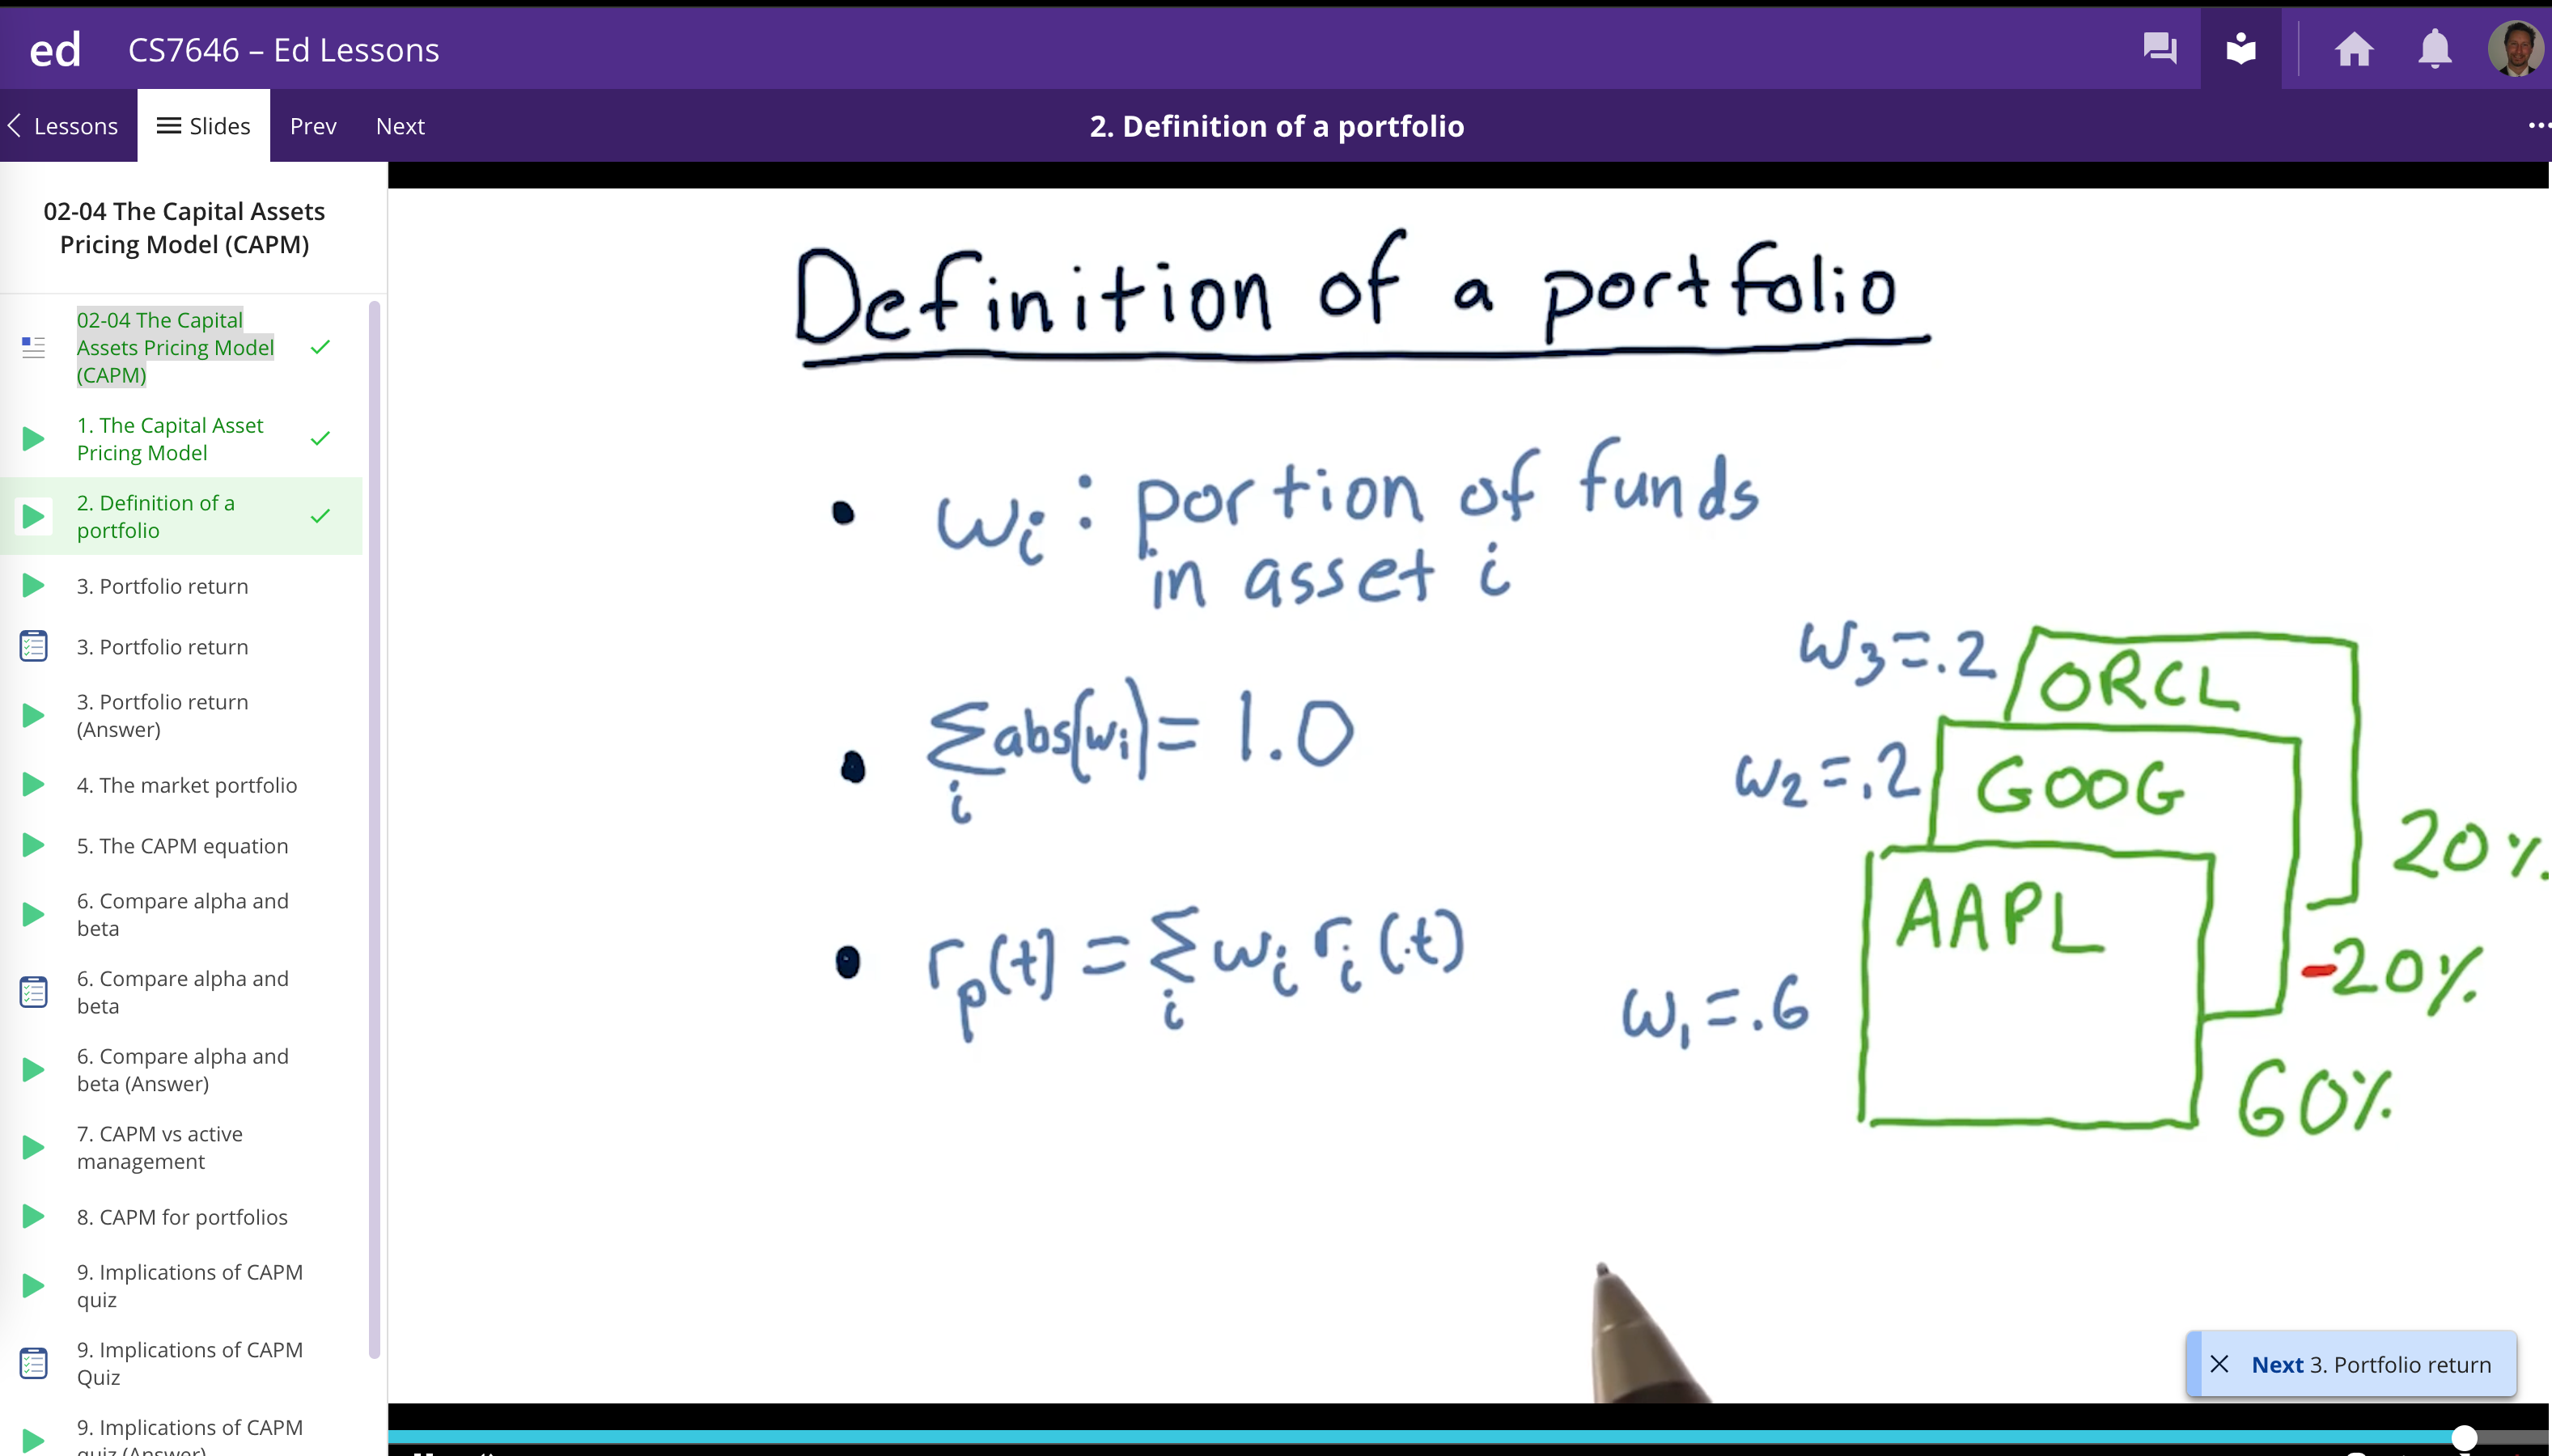 ed CS7646 – Ed Lessons
Lessons Slides Prev Next 2. Definition of a portfolio
02-04 The Capital Assets
Pricing Model (CAPM)
02-04 The Capital
Assets Pricing Model
(CAPM)
1. The Capital Asset
Pricing Model
2. Definition of a
portfolio
3. Portfolio return
3. Portfolio return
3. Portfolio return
(Answer)
4. The market portfolio
5. The CAPM equation
6. Compare alpha and
beta
6. Compare alpha and
beta
6. Compare alpha and
beta (Answer)
7. CAPM vs active
management
8. CAPM for portfolios
9. Implications of CAPM
quiz
9. Implications of CAPM
Quiz
9. Implications of CAPM
quiz (Answer)
Definition of a portfolio
• wᵢ : portion of funds
in asset i
• ∑ᵢ abs(wᵢ) = 1.0
• rₚ(t) = ∑ᵢ wᵢ rᵢ(t)
w₃ = .2 ORCL
w₂ = .2 GOOG
20%
AAPL
-20%
w₁ = .6
60%
Next 3. Portfolio return